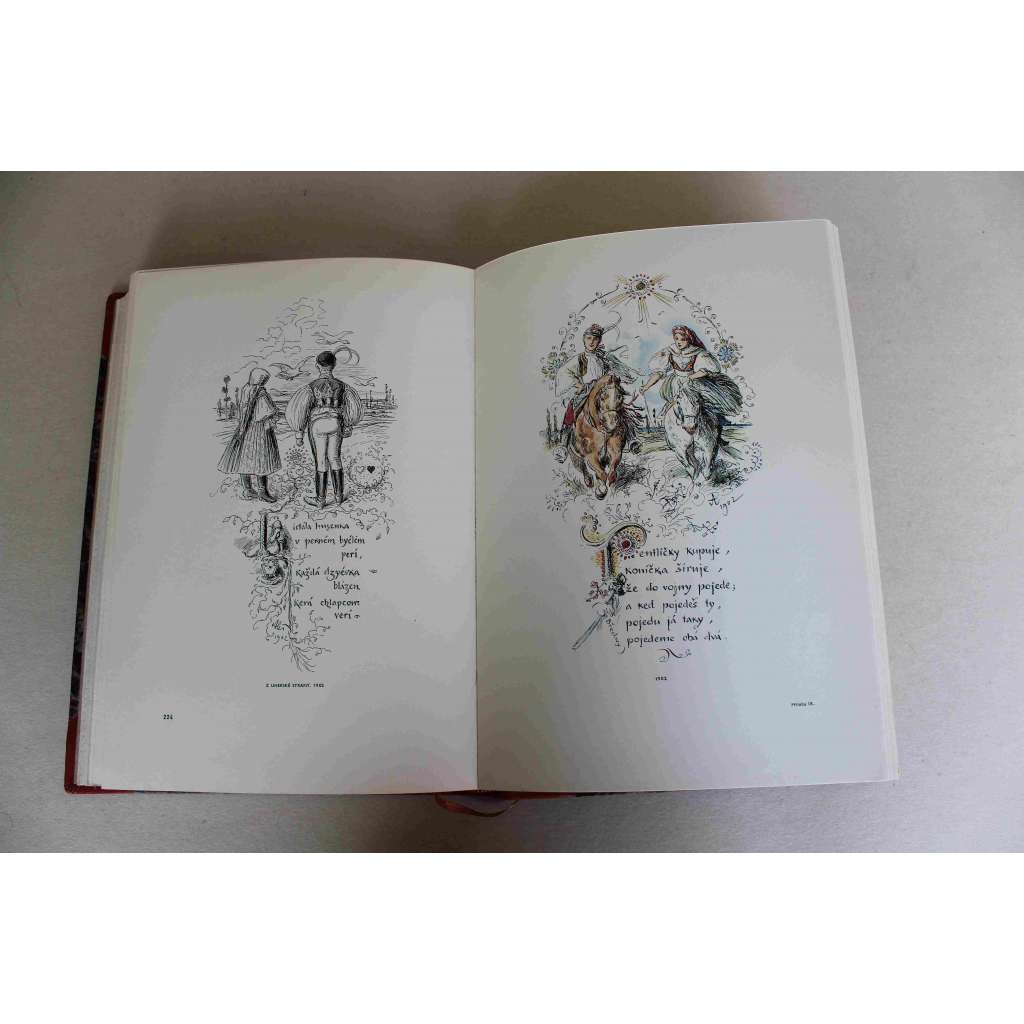 istála husenka
v perném byčlém
perí,
každá dzyévka
blázen
kerá chlapcom
verí
1902
Z UHERSKÉ STRANY. 1902
224
A
1902
Pentličky kupuje,
koníčka šíruje,
že do vojny pojede;
a keď pojedeš ty,
pojedu já taky,
pojedeme obá dvá.
1902
Příloha IX.